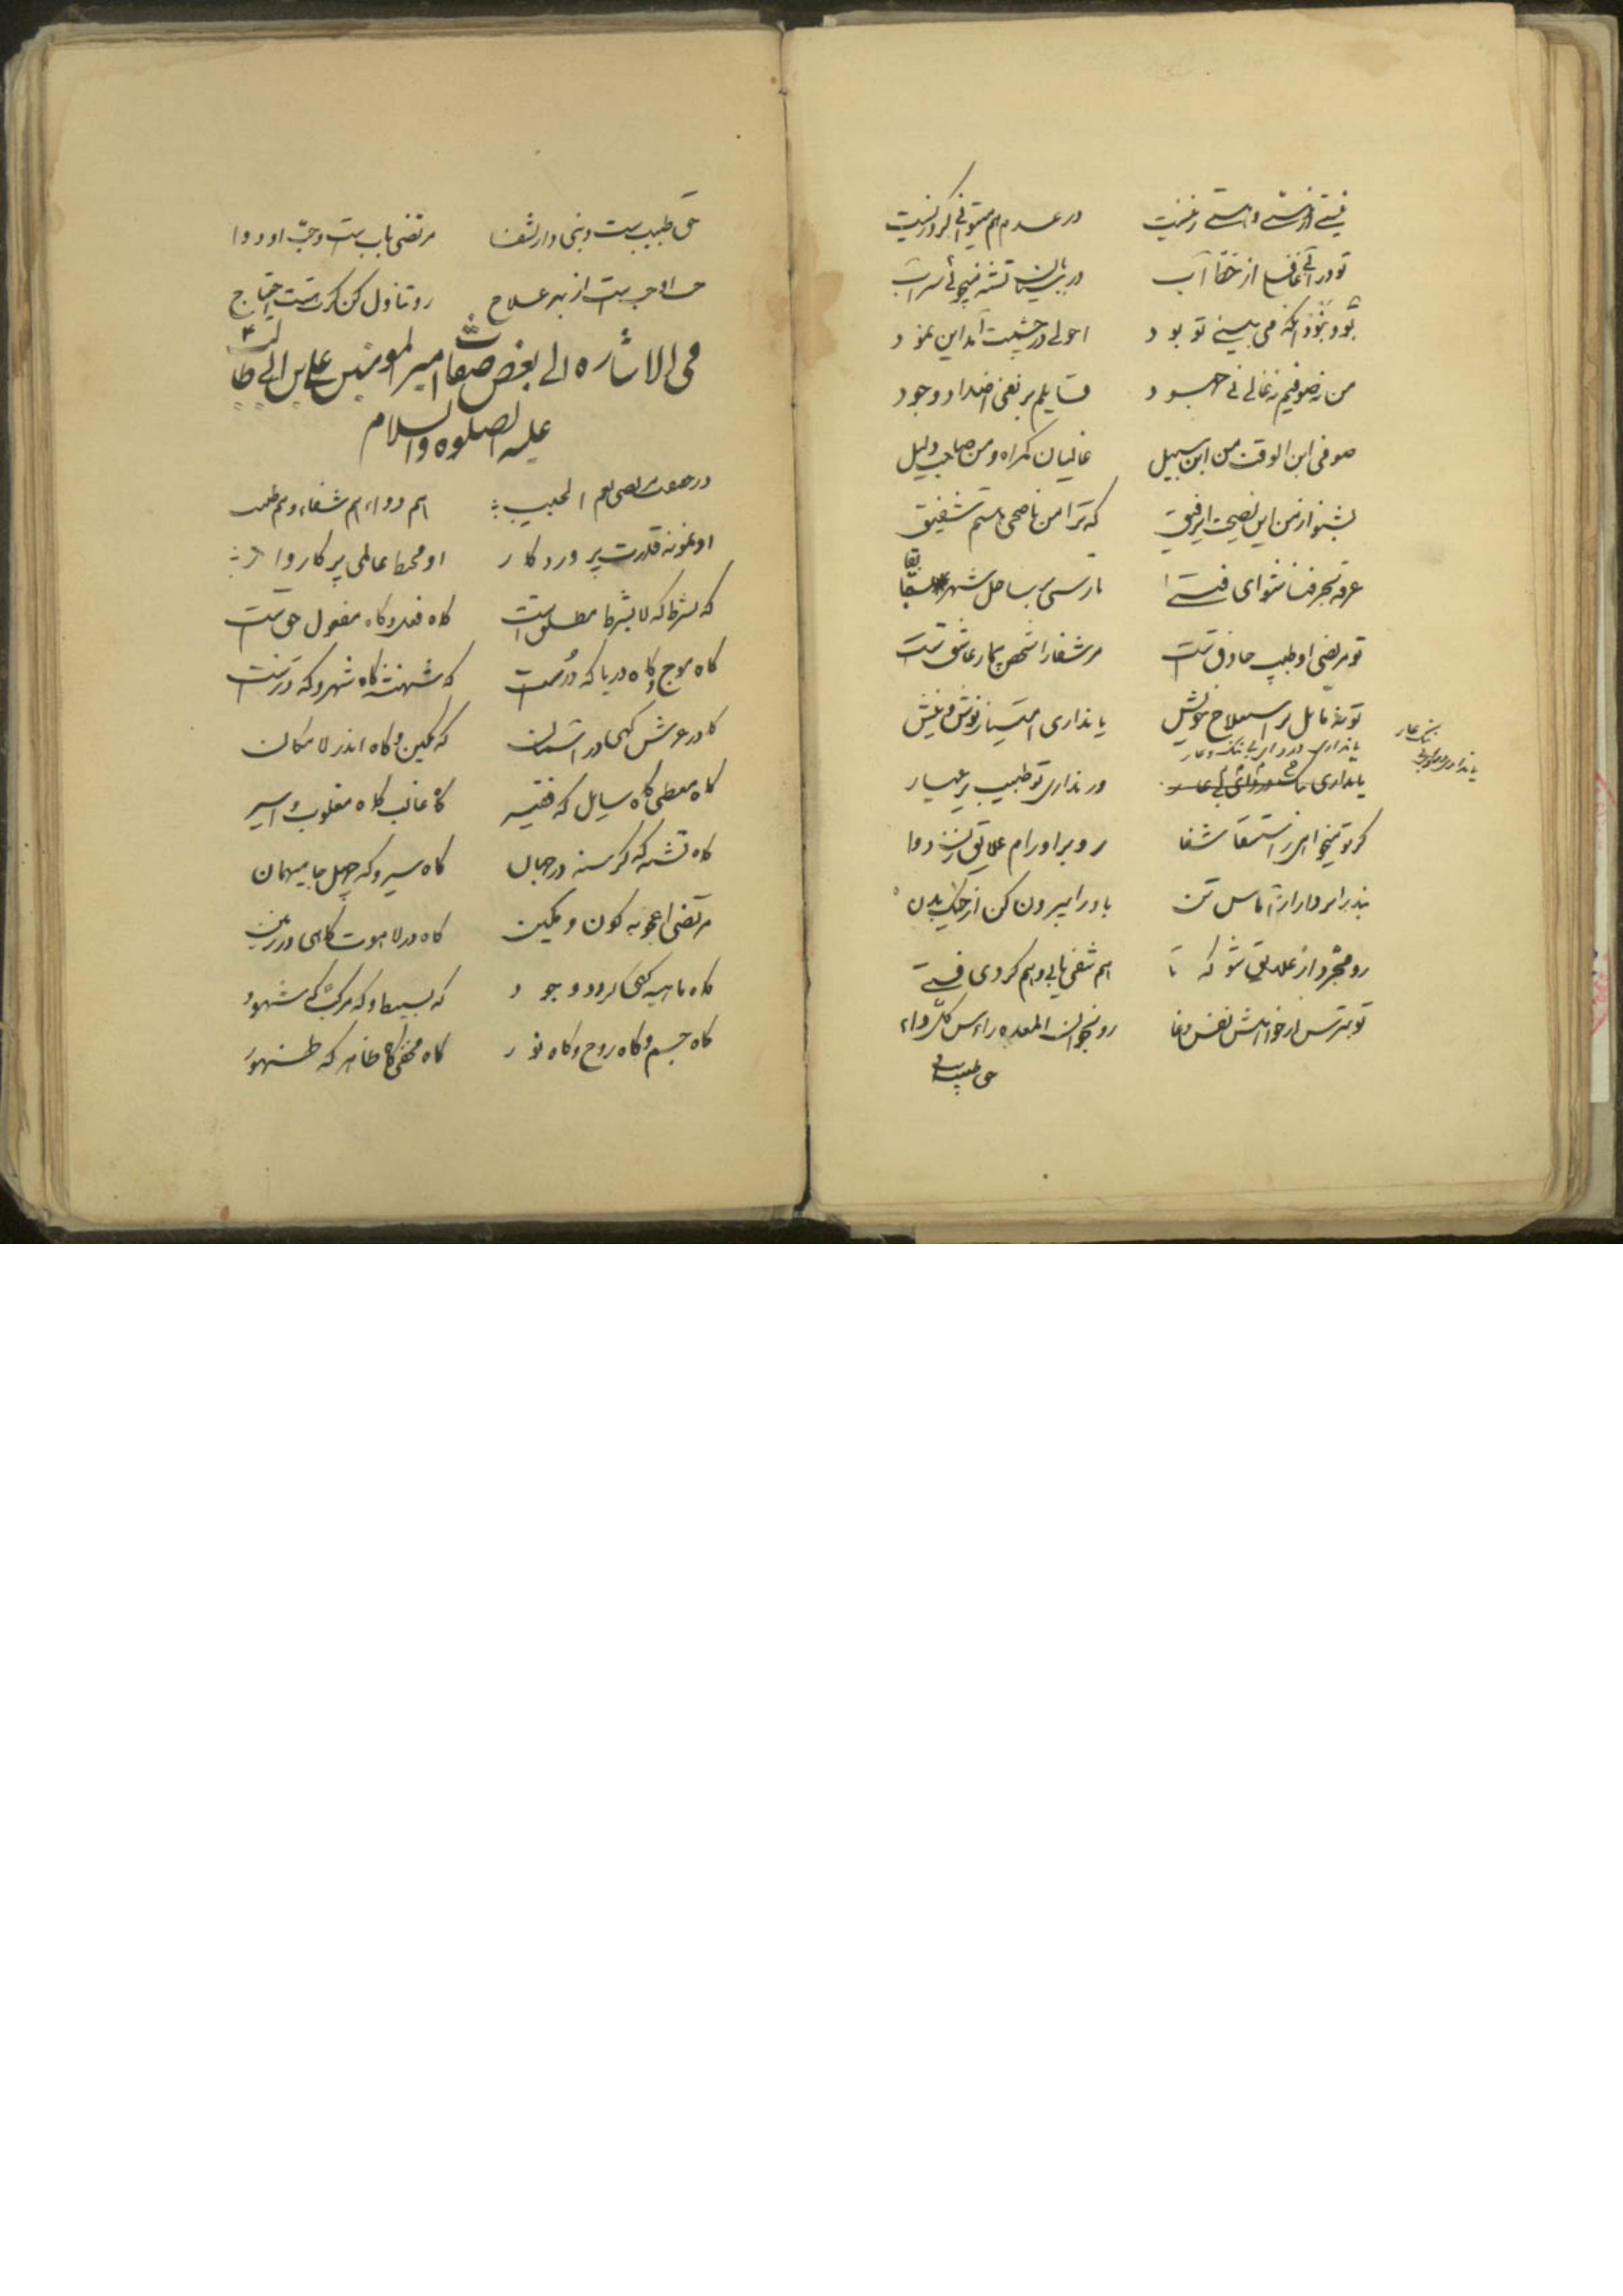 در عدم هم میتوانی کرد زیست
تو در آبی غافل از خط آب در بیابان تشنه میجوئی سراب
بود نبود آنکه می بینی تو بود احولی در چشمت آمد این نمود
من نه صوفیم نه غالی نی حسود قایلم بر نفی اضداد وجود
صوفی ابن الوقت من ابن سبیل غالیان گمراه و من صاحب دلیل
بشنو از من این نصیحت ای رفیق که ترا من ناصحی باشم شفیق
غرقه بحر فنا شو ای فتی تا رسی بر ساحل شهر بقا
تو مریضی او طبیب حاذق است مر شفا را شخص بیمار عاشق است
تو نه مایل بر استعلاج خویش یا نداری امتیاز نوش و نیش
یا نداری درد ای بی ننگ و عار
یا نداری ور نداری تو طبیب
گر تو میخواهی ز استسقا شفا رو بر اورام علایق نه دوا
بند بردار از آماس تن باد را بیرون کن از خیک بدن
رو مجرد از علایق شو که تا هم شفی یابی و هم گردی فتی
تو بترس از خواهش نفس دغا رو بخوان المعده راس کل داء
حق طبیب است
حق طبیب ست و نبی دار الشفا مرتضی باب ست و حب او دوا
حب او حب ست از بهر علاج رو تناول کن گرت هست احتیاج
فی الاشاره الی بعض صفات امیر المومنین علی بن ابی طالب
علیه الصلوه والسلام
در صفت مرتضی نعم الحبیب هم دواء هم شفاء و هم طبیب
او نمونه قدرت پروردگار او محیط عالمی پرگاروار
که بشرط که لا بشرط مطلق است گاه فعل و گاه مفعول حق است
گاه موج و گاه دریا که در است که شهنشه گاه شهر و که در است
گاه در عرش گهی در آسمان که مکین و گاه اندر لامکان
گاه معطی گاه سایل که فقیر گاه غالب گاه مغلوب و اسیر
گاه تشنه که گرسنه در جهان گاه سیر و که چهل جا میهمان
مرتضی اعجوبه کون و مکین گاه در لاهوت گاهی در زمین
گاه ماهیه گهی گردد وجود که بسیط و که مرکب که شهود
گاه جسم و گاه روح و گاه نور گاه مخفی گاه ظاهر که ظهور